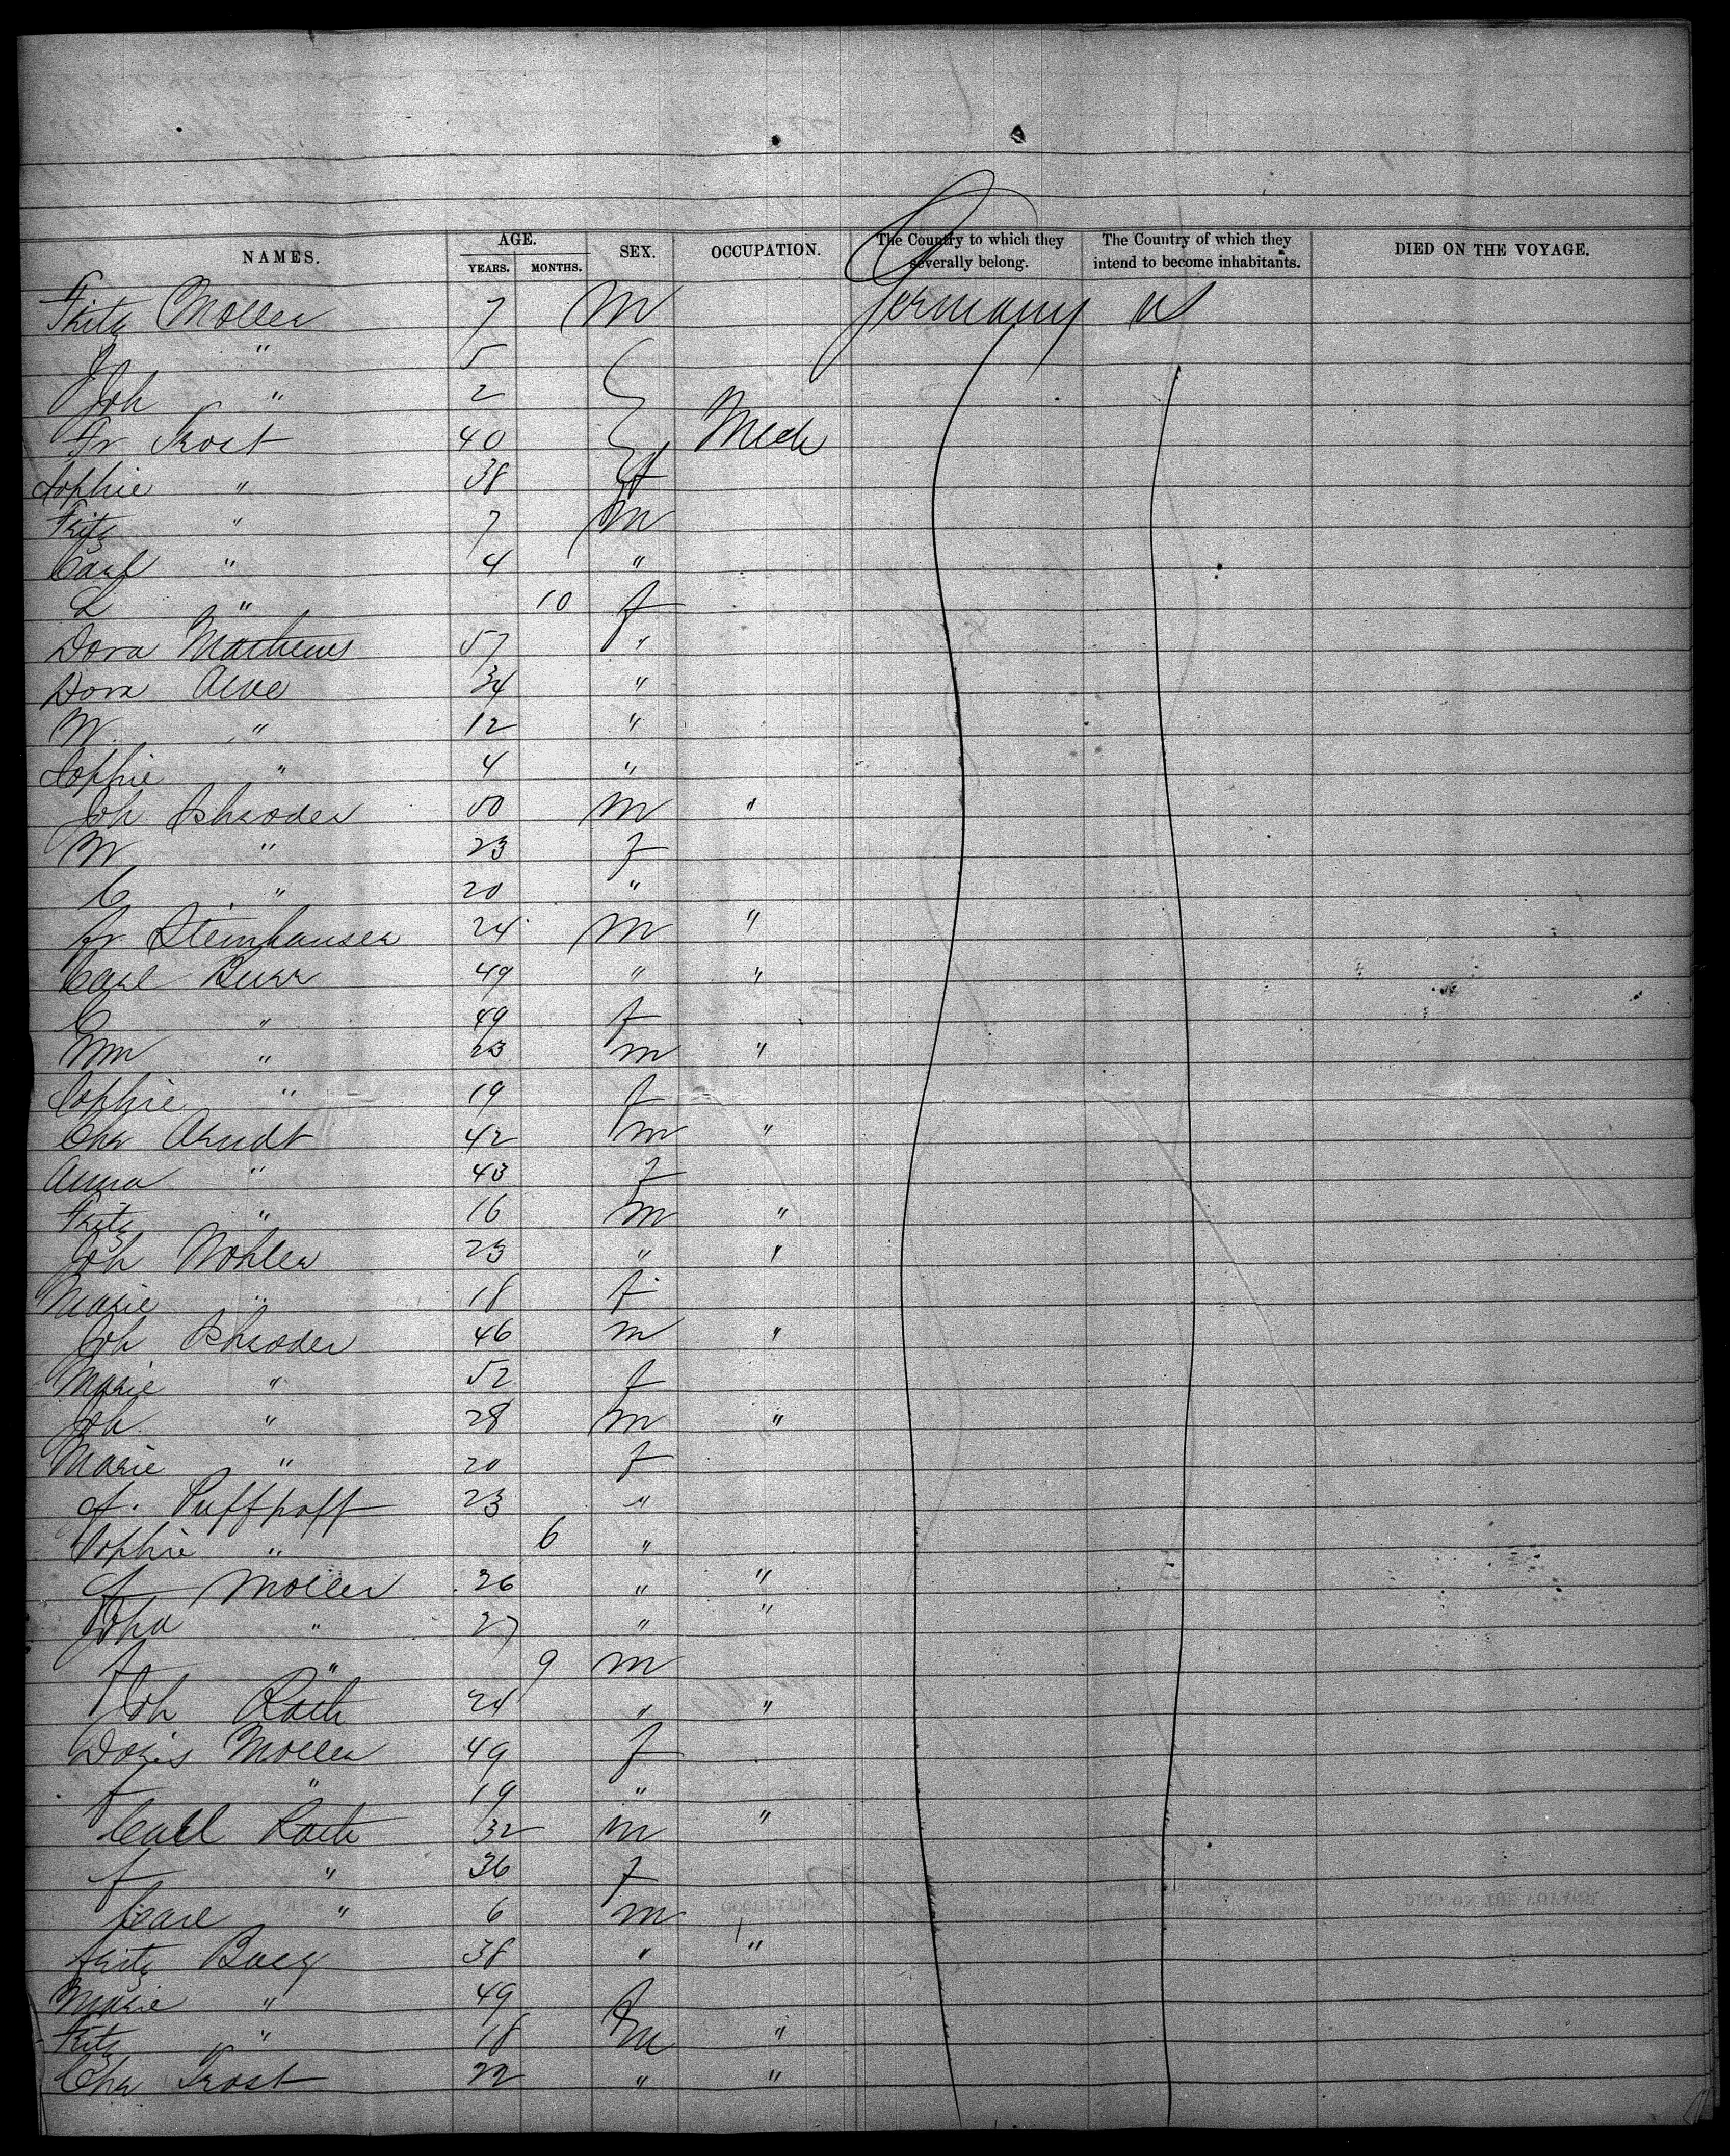 NAMES. AGE. YEARS. MONTHS. SEX. OCCUPATION. The Country to which they severally belong. The Country of which they intend to become inhabitants. DIED ON THE VOYAGE.
Fritz Moller 7 M Germany US
J " 5
Joh " 2
Fr Trost 40 Mech
Sophie " 38 f
Fritz " 7 M
Carl " 4 "
L " 10 f
Dora Mathews 57 "
Dora Alve 34 "
W " 12 "
Sophie " 4 "
Joh Schroder 50 M "
W " 23 f
C " 20 "
Fr Steinhauser 24 M "
Carl Burr 49 " "
C " 49 f
Wm " 23 m "
Sophie " 19 f
Chr Arndt 42 m "
Anna " 43 f
Fritz " 16 m "
Joh Wohler 23 " "
Marie " 18 f
Joh Schroder 46 m "
Marie " 52 f
Joh " 28 m "
Marie " 20 f
f. Puffpaff 23 "
Sophie " 6 "
f Moller 26 " "
Joha " 27 " "
f " 9 m
Joh Rath 24 " "
Doris Moller 49 f
f " 19 "
Carl Rath 32 m "
f " 36 f
Carl " 6 m
Fritz Bury 38 " "
Marie " 49 f
Fritz " 18 m "
Chr Trost 22 " "